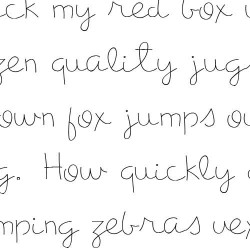 ck my red box
zen quality jug
own fox jumps ou
g. How quickly
mping zebras vex